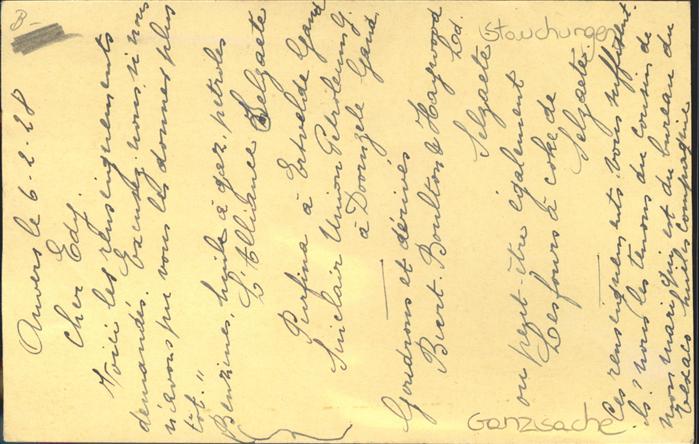 B-
Anvers le 6-2-28
Cher Edg.
Voici les renseignements
demandés. Excusez-nous si nous
n'avons pu vous les donner plus
tôt."
Benzines, huile à gaz, pétroles
L'Alliance Selzaete
Purfina à Ertvelde Gand
Sinclair Union Petroleum G.
à Doornzele Gand
Goudrons et dérivés
Burt. Boulton & Haywood
Ltd.
Selzaete
ou peut-être également
Les fours à coke de
Selzaete
Ces renseignements vous suffisent-
ils? nous les tenons du cousin de
mon mari qui est du bureau du
Texaco
Stauchungen
Ganzsache